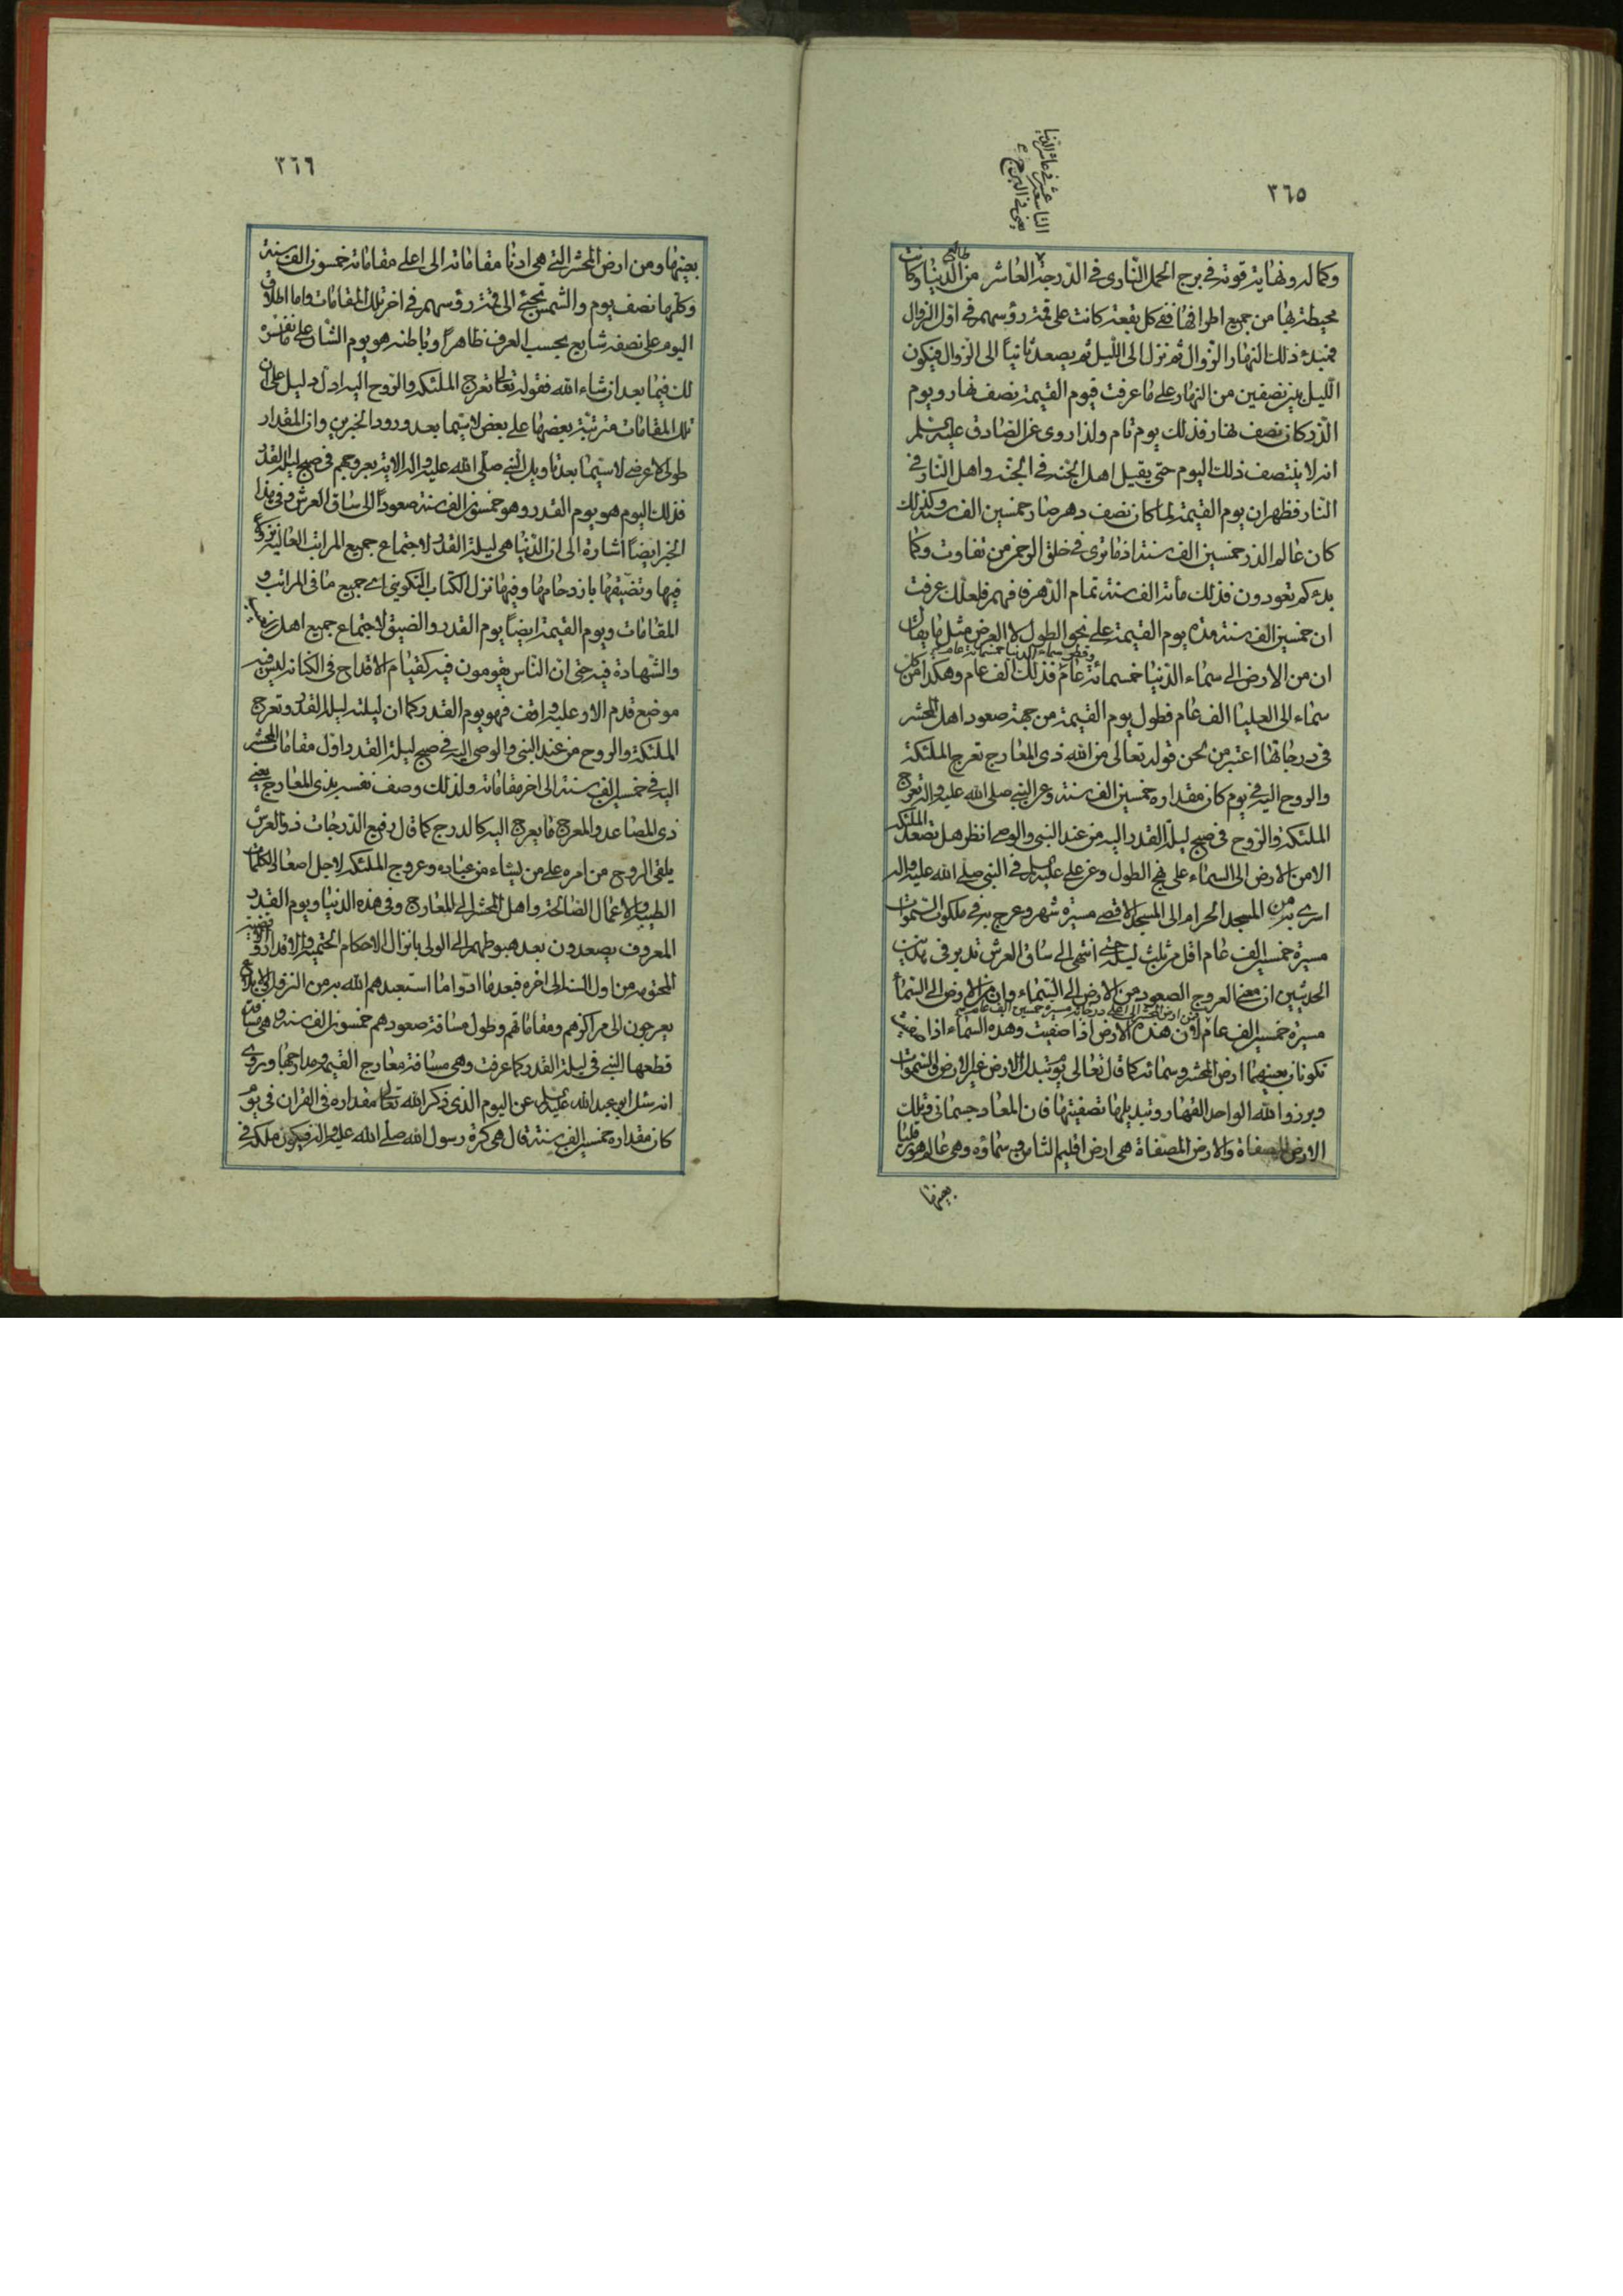 ٣٦٥
وكماله ونهاية قوته في برج الحمل الناري في الدرجة العاشر من طالع الدنيا وكانت
محيطة بها من جميع اطرافها ففي كل بقعة كانت على قمة رؤسهم في اول الزوال
فمبدء ذلك النهار الزوال ثم نزل الى الليل ثم يصعد ثانياً الى الزوال فيكون
الليل بين نصفين من النهار على ما عرفت فيوم القيمة نصف نهار ويوم
الذر كان نصف نهار فذلك يوم تام ولذا روى عن الصادق عليه السلم
انه لا ينتصف ذلك اليوم حتى يقيل اهل الجنة في الجنة واهل النار في
النار فظهر ان يوم القيمة لما كان نصف دهر صار خمسين الف سنة وكذلك
كان عالم الذر خمسين الف سنة اذ ما ترى في خلق الرحمن من تفاوت وكما
بدءكم تعودون فذلك مأته الف سنة تمام الدهر فافهم فلعلك عرفت
ان خمسين الف سنة مدة يوم القيمة على نحو الطول لا العرض مثل ما يقال
ان من الارض الى سماء الدنيا خمسمائة عام وقطر سماء الدنيا خمسمائة عام فذلك الف عام وهكذا من كل
سماء الى العليا الف عام فطول يوم القيمة من جهة صعود اهل المحشر
في درجاتها اعتبر من نحن قوله تعالى من الله ذي المعارج تعرج الملئكة
والروح اليه في يوم كان مقداره خمسين الف سنة وعن النبي صلى الله عليه واله تعرج
الملئكة والروح في صبح ليلة القدر اليه من عند النبي والوصي انظر هل تصعد الملئكة
الا من الارض الى السماء على نهج الطول وعن علي عليه السلم في النبي صلى الله عليه واله
اسرى به من المسجد الحرام الى المسجد الاقصى مسيرة شهر وعرج به في ملكوت السموات
مسيرة خمسين الف عام اقل من ثلث ليلة حتى انتهى الى ساق العرش تدبر في هذين
الحديثين ان معنى العروج الصعود من الارض الى السماء وان من الارض الى السماء
مسيرة خمسين الف عام لان هذه الارض اذا صفيت وهذه السماء اذا صفيت
تكونان بعينهما ارض المحشر وسمائه كما قال تعالى يوم تبدل الارض غير الارض والسموات
وبرزوا لله الواحد القهار وتبديلها تصفيتها فان المعاد جسماني وتلك
الارض المصفاة والارض المصفاة هي ارض اقليم الثامن وسماؤه وهي عالم هورقليا
بعينها
٣٦٦
بعينها ومن ارض المحشر التي هي ادنا مقاماته الى اعلى مقاماته خمسون الف سنة
وكلها نصف يوم والشمس تجيئ الى قمة رؤسهم في اخر تلك المقامات واما اطلاق
اليوم على نصفه شايع بحسب العرف ظاهراً وباطنه هو يوم الشان على ما نفسره
لك فيما بعد ان شاء الله فقوله تعالى تعرج الملئكة والروح اليه ادل دليل على ان
تلك المقامات مترتبة بعضها على بعض لا سيما بعد ورود الخبرين وان المقدار
طولى لا عرضى لا سيما بعد تاويل النبي صلى الله عليه واله الاية بعروجهم في صبح ليلة القدر
فذلك اليوم هو يوم القدر وهو خمسون الف سنة صعوداً الى ساق العرش وفي هذا
الخبر ايضاً اشارة الى ان الدنيا هي ليلة القدر لاجتماع جميع المراتب العالية
فيها وتضيقها بازدحامها وفيها نزل الكتاب التكويني اي جميع ما في المراتب و
المقامات ويوم القيمة ايضاً يوم القدر والضيق لاجتماع جميع اهل
والشهادة فيه حتى ان الناس يقومون فيه كقيام الاقداح في الكنانة ليس فيه
موضع قدم الا وعليه واقف فهو يوم القدر كما ان ليلته ليلة القدر وتعرج
الملئكة والروح من عند النبي والوصي اليه في صبح ليلة القدر اول مقامات المحشر
اليه في خمسين الف سنة الى اخر مقاماته ولذلك وصف نفسه بذي المعارج يعني
ذي المصاعد والمعرج ما يعرج اليه كالدرج كما قال رفيع الدرجات ذو العرش
يلقى الروح من امره على من يشاء من عباده وعروج الملئكة لاجل اصعاد الكلمات
الطيبة والاعمال الصالحة واهل المحشر الى المعارج وفي هذه الدنيا ويوم القدر
المعروف يصعدون بعد هبوطهم الى الولي بانزال الاحكام الحتمية والاقدار
المحتومة من اول السنة الى اخره فبعد ما اتوا ما استعبدهم الله به من النزول
يعرجون الى مراكزهم ومقاماتهم وطول مسافة صعودهم خمسون الف سنة وهي مسافة
قطعها النبي في ليلة القدر كما عرفت وهي مسافة معارج القيمة ومدارجها وروى
انه سئل ابو عبد الله عليه السلم عن اليوم الذي ذكر الله تعالى مقداره في القران في يوم
كان مقداره خمسين الف سنة قال هي كرة رسول الله صلى الله عليه واله فيكون ملكه في